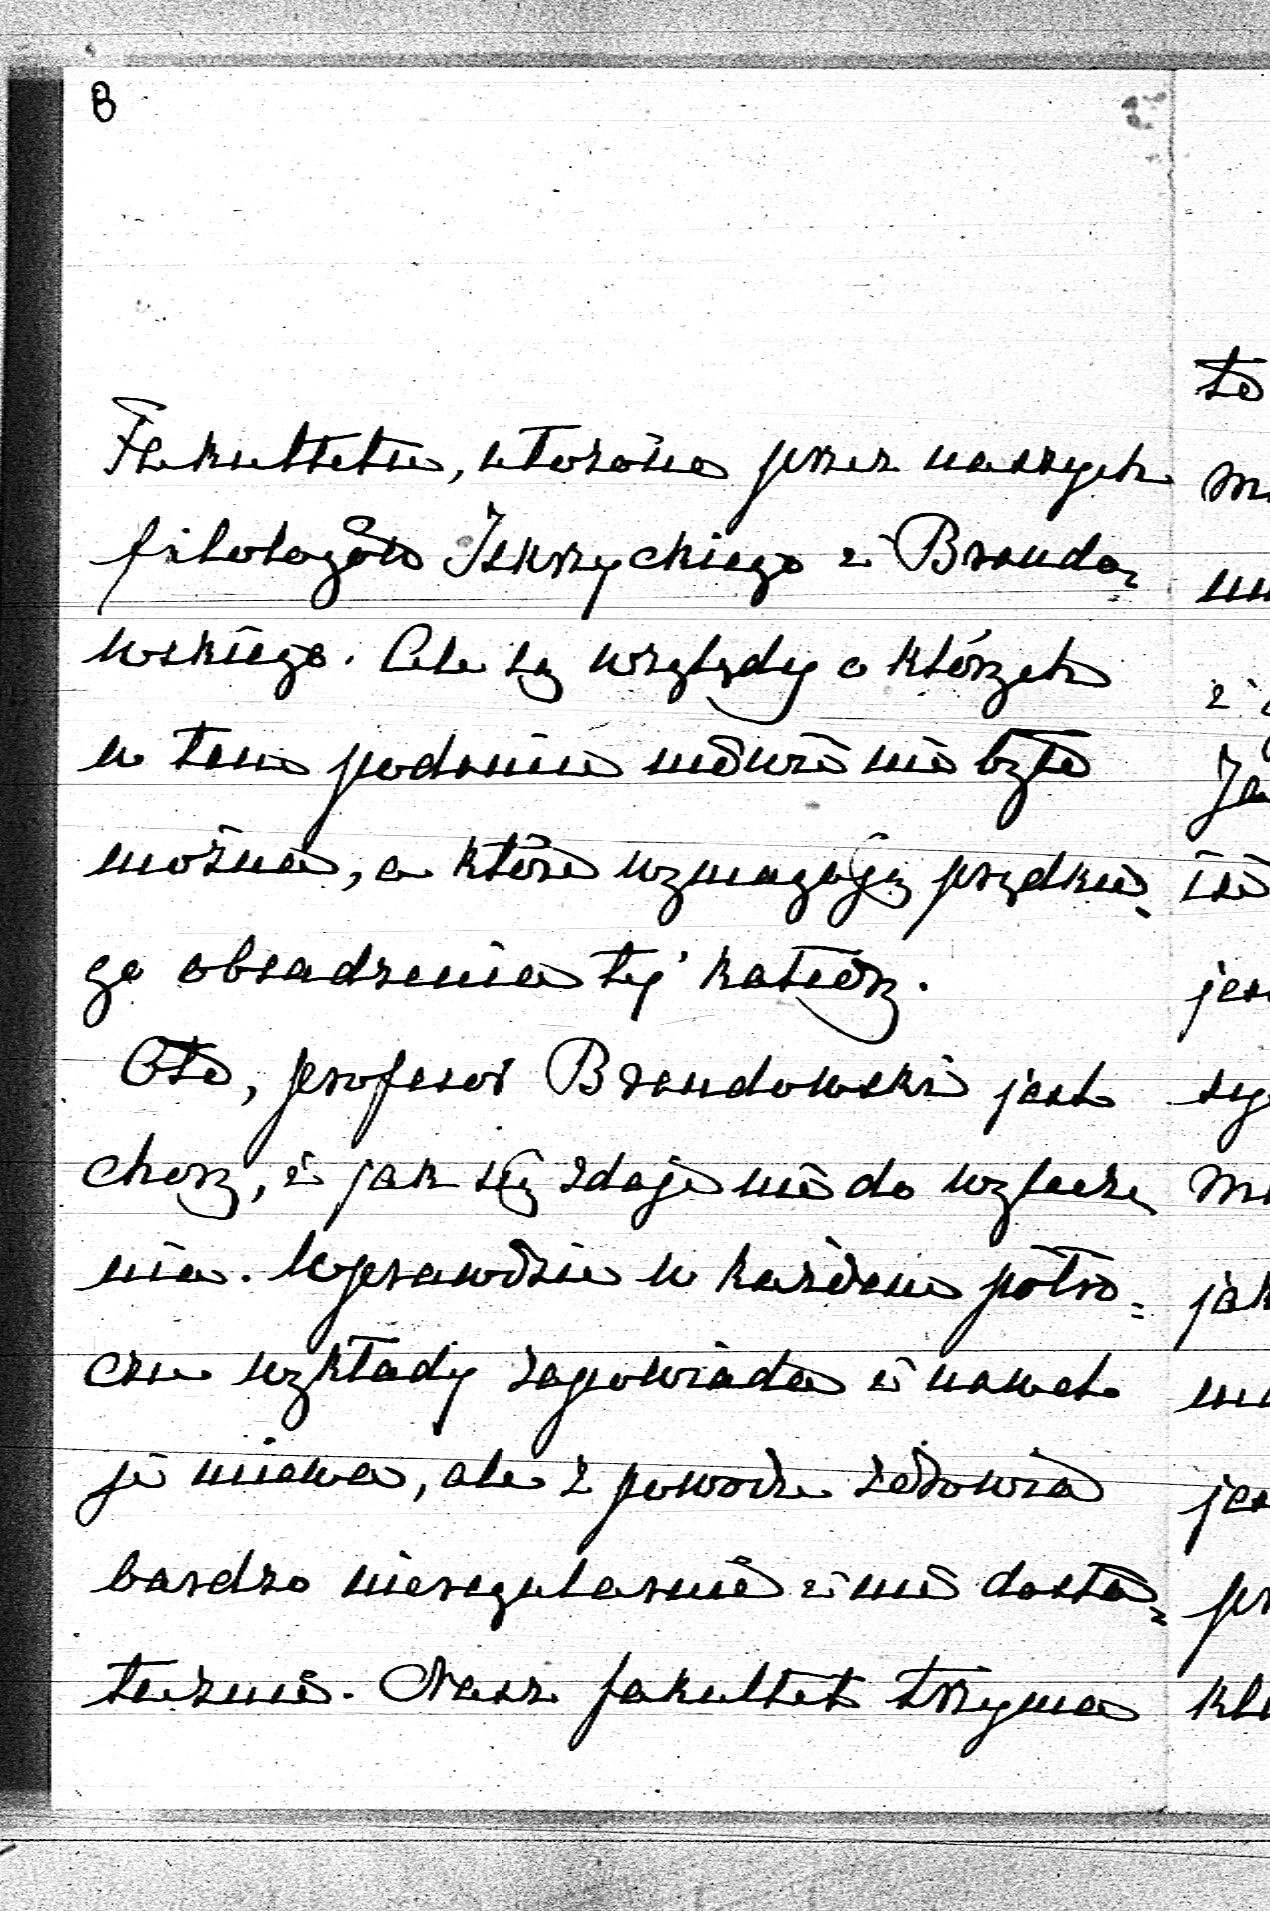 8
Fakultetu, ułożone przez naszych
filologów Iskrzyckiego i Brando=
wskiego. Ale są względy o których
w tem podaniu mówić nie było
można, a które wymagają prędkie-
go obsadzenia tej katedry.
Oto, profesor Brandowski jest
chory, i jak się zdaje nie do wylecze-
nia. Wprawdzie w każdem półro=
czu wykłady zapowiada i nawet
je miewa, ale z powodu zdrowia
bardzo nieregularnie i nie dosta=
tecznie. Nasz fakultet trzyma